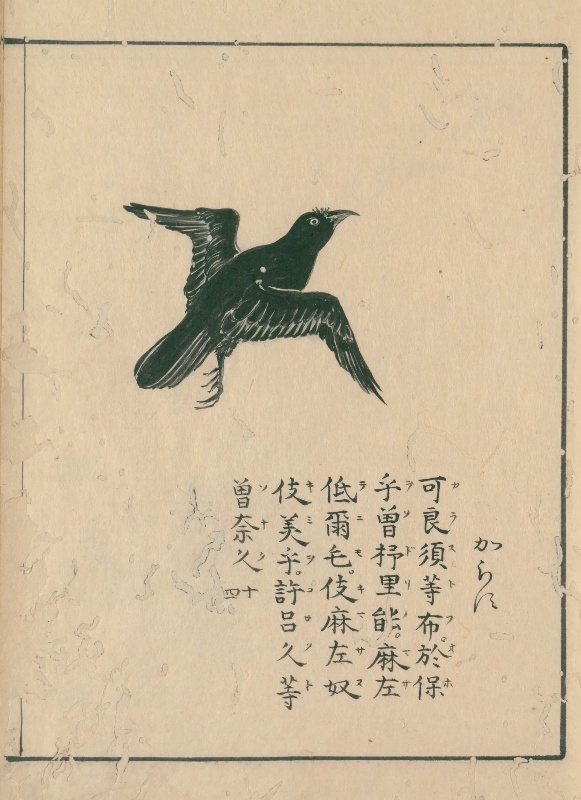 からす
可良須等布。於保
乎曽杼里能。麻左
低爾毛。伎麻左奴
伎美乎。許呂久等
曽奈久 十四